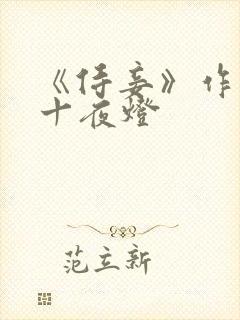 《侍妾》作
十夜燈
范立新